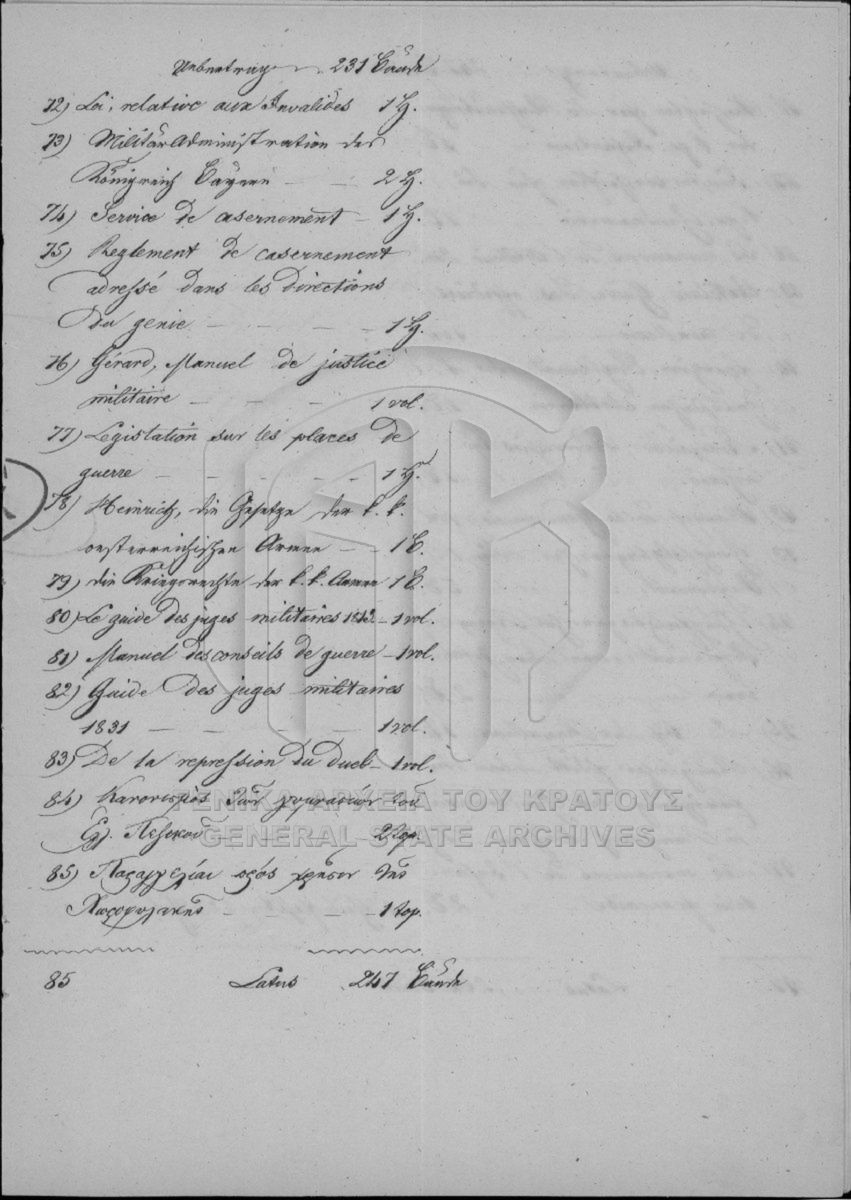 Uebertrag 231 Bände
72) Loi, relative aux Invalides 1 H.
73) Militär Administration des
Königreich Bayern — — 2 H.
74) Service de casernement — 1 H.
75) Reglement de casernement
adressé dans les directions
du genie — — — — 1 H.
76) Gérard, Manuel de justice
militaire — — — — 1 vol.
77) Legislation sur les places de
guerre — — — — — 1 H.
78) Heinrich, die Gesetze der k. k.
oesterreichischen Armee — — 1 B.
79) die Kriegsrechte der k. k. Armee 1 B.
80) Le guide des juges militaires 1813 — 1 vol.
81) Manuel des conseils de guerre — 1 vol.
82) Guide des juges militaires
1831 — — — — 1 vol.
83) De la repression du duel — 1 vol.
84) Κανονισμὸς τῶν γυμνασίων τοῦ
Ἑλ. Πεζικοῦ — — — 2 τομ.
85) Παραγγελίαι πρὸς χρῆσιν τῆς
Χωροφυλακῆς — — — — 1 τομ.
85 Latus 247 Bände
ΓΕΝΙΚΑ ΑΡΧΕΙΑ ΤΟΥ ΚΡΑΤΟΥΣ
GENERAL STATE ARCHIVES